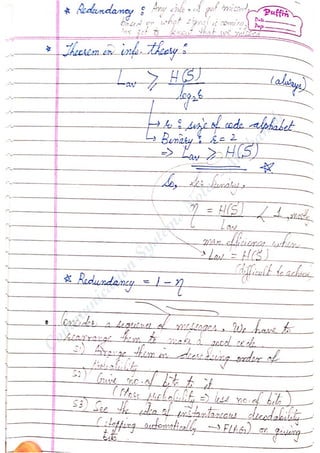 * Redundancy :
Puffin
Date
Page
* Theorem in info. theory :
Lav ≥ H(S) / log₂ r (always)
→ r : size of code alphabet
→ Binary : r = 2
⇒ Lav ≥ H(S)
So, for binary,
η = H(S) / Lav < 1
max efficiency when
Lav = H(S)
(difficult to achieve
* Redundancy = 1 - η
• Consider a sequence of messages. We have to
rearrange them to make a good code
S1) Arrange them in decreasing order of
probability
S2) Give no. of bits to it
(More probability ⇒ less no. of bits)
S3) See the idea of instantaneous decodability
(stopping automatically → FLAG) on giving
bits